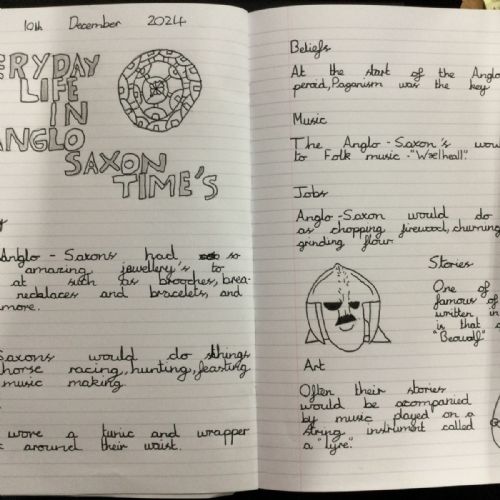 10th December 2024
ERYDAY
LIFE
IN
ANGLO
SAXON
TIME'S
y
Anglo - Saxons had so
amazing jewellery's to
at such as brooches, brea-
necklaces and bracelets, and
more.
Saxons would do things
horse racing, hunting, feasting
music making
wore a tunic and wrapper
around their waist.
Beliefs
At the start of the Anglo
peroid, Paganism was the key
Music
The Anglo - Saxon's wou
to Folk music -
Jobs
Anglo - Saxon would do
as chopping firewood, churning
grinding flour
Stories
One of
famous of
written in
is that
"Beowulf"
Art
Often their stories
would be acompanied
by music played on a
string instrument called
a "lyre".